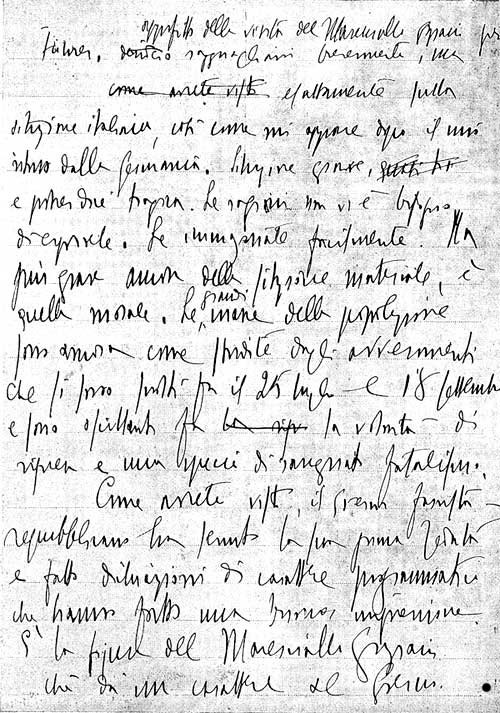 approfitto della visita del Maresciallo Graziani per
Führer, ragguagliarvi brevemente, ma
come avrete visto esattamente sulla
situazione italiana, così come mi appare dopo il mio
ritorno dalla Germania. Situazione grave,
e potrei dire tragica. Le ragioni non vi è bisogno
di esporvele. Le immaginate facilmente. Ma
più grave ancora della situazione materiale, è
quella morale. Le grandi masse della popolazione
sono ancora come stordite dagli avvenimenti
che si sono svolti fra il 25 luglio e l'8 settembre
e sono oscillanti fra la volontà di
ripresa e una specie di rassegnato fatalismo.
Come avrete visto, il Governo fascista
repubblicano ha tenuto la sua prima seduta
e fatto dichiarazioni di carattere programmatico
che hanno fatto una buona impressione.
È la figura del Maresciallo Graziani
che dà un carattere al Governo.